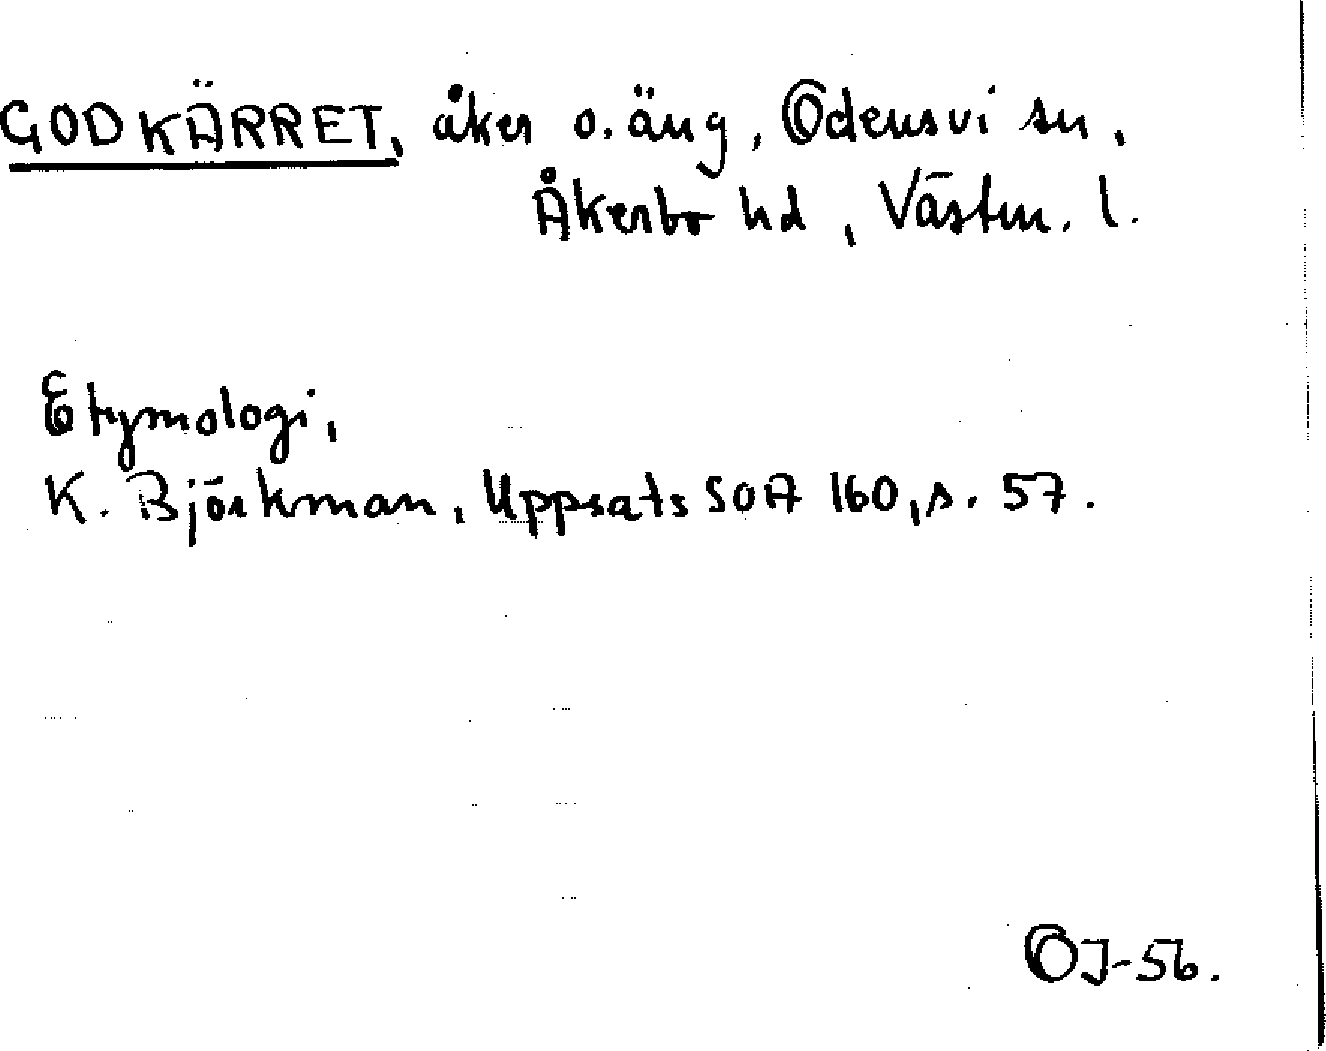 GODKÄRRET, åker o. äng, Odensvi sn,
Åkerbo hd, Västm. l.
Etymologi,
K. Björkman, Uppsats SOA 160, s. 57.
OJ-56.